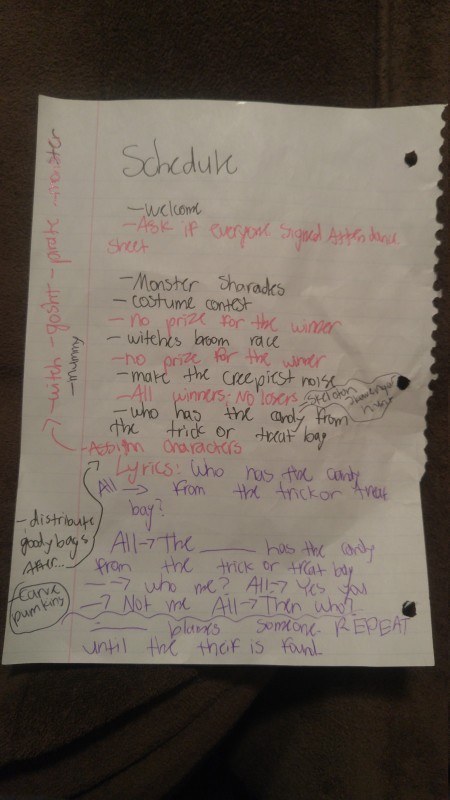 Schedule
- welcome
- Ask if everyone signed Attendance
sheet
- Monster Sharades
- costume contest
- no prize for the winner
- witches broom race
- no prize for the winner
- make the creepiest noise
- All winners. No losers
skeleton
hunt
- who has the candy from
the trick or treat bag
- Assign Characters
- witch - gosht - pirate - monster
- mummy
Lyrics: Who has the candy
All → from the trick or treat
bag?
- distribute
goody bags
After...
- Carve
pumkins
All → The ____ has the candy
from the trick or treat bag
__ → who me? All → Yes you
→ Not me All → Then who?
____ blames someone. REPEAT
until the theif is found